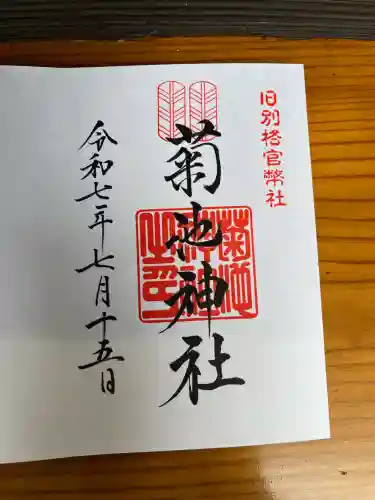 旧別格官幣社
菊池神社
菊池神社之印
令和七年七月十五日